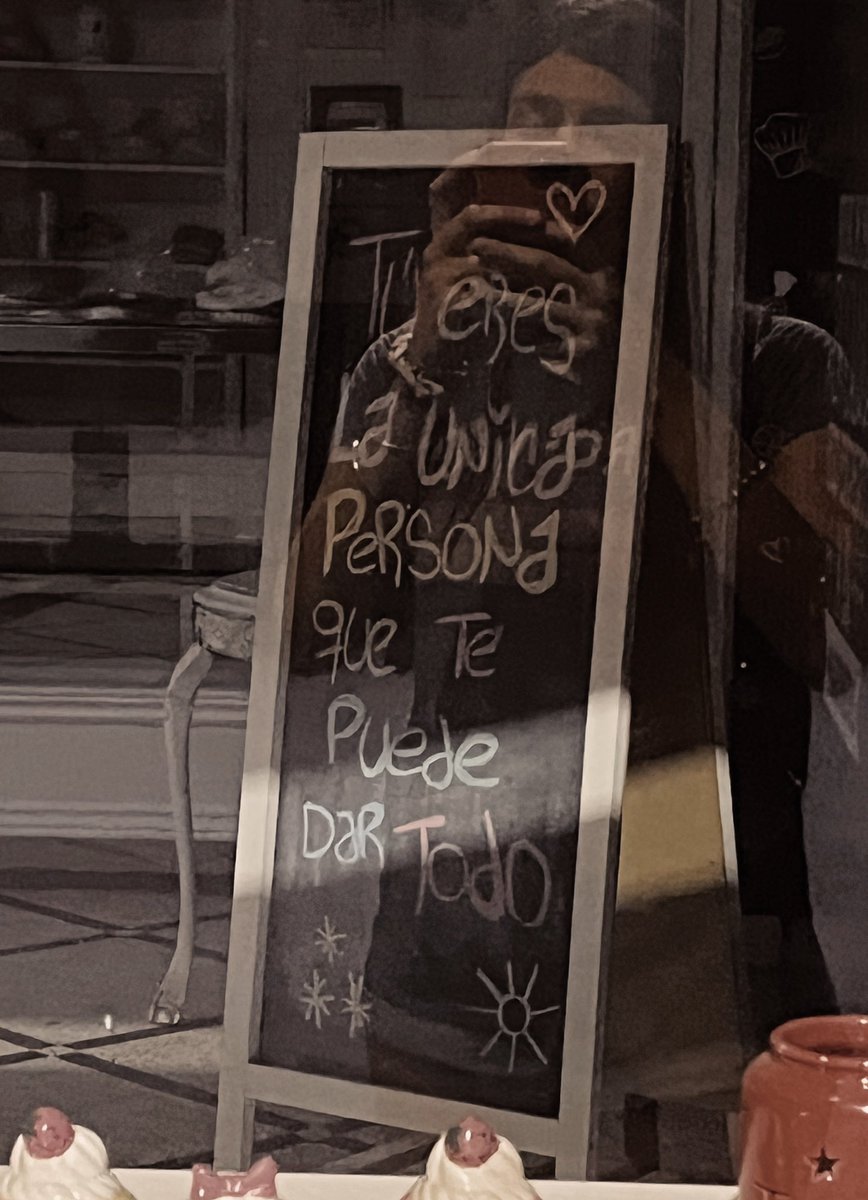 Tú
eres
La UNica
PeRSONa
que Te
Puede
DaR Todo